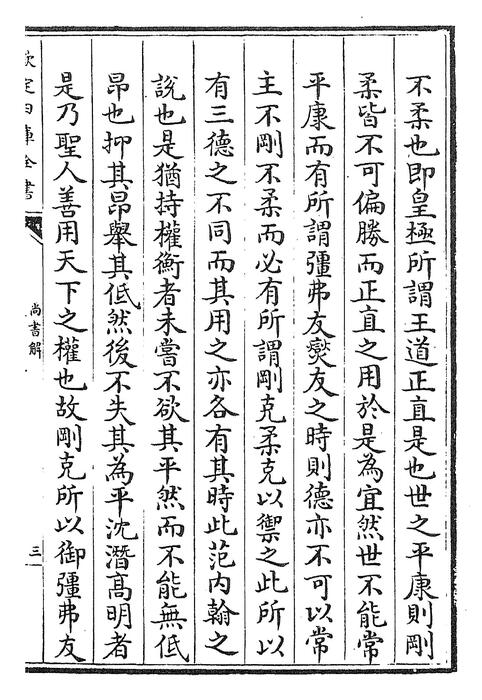 不柔也即皇極所謂王道正直是也世之平康則剛
柔皆不可偏勝而正直之用於是為宜然世不能常
平康而有所謂彊弗友燮友之時則德亦不可以常
主不剛不柔而必有所謂剛克柔克以禦之此所以
有三德之不同而其用之亦各有其時此范内翰之
說也是猶持權衡者未嘗不欲其平然而不能無低
昂也抑其昂舉其低然後不失其為平沈潛髙明者
是乃聖人善用天下之權也故剛克所以御彊弗友
欽定四庫全書
尚書解
三